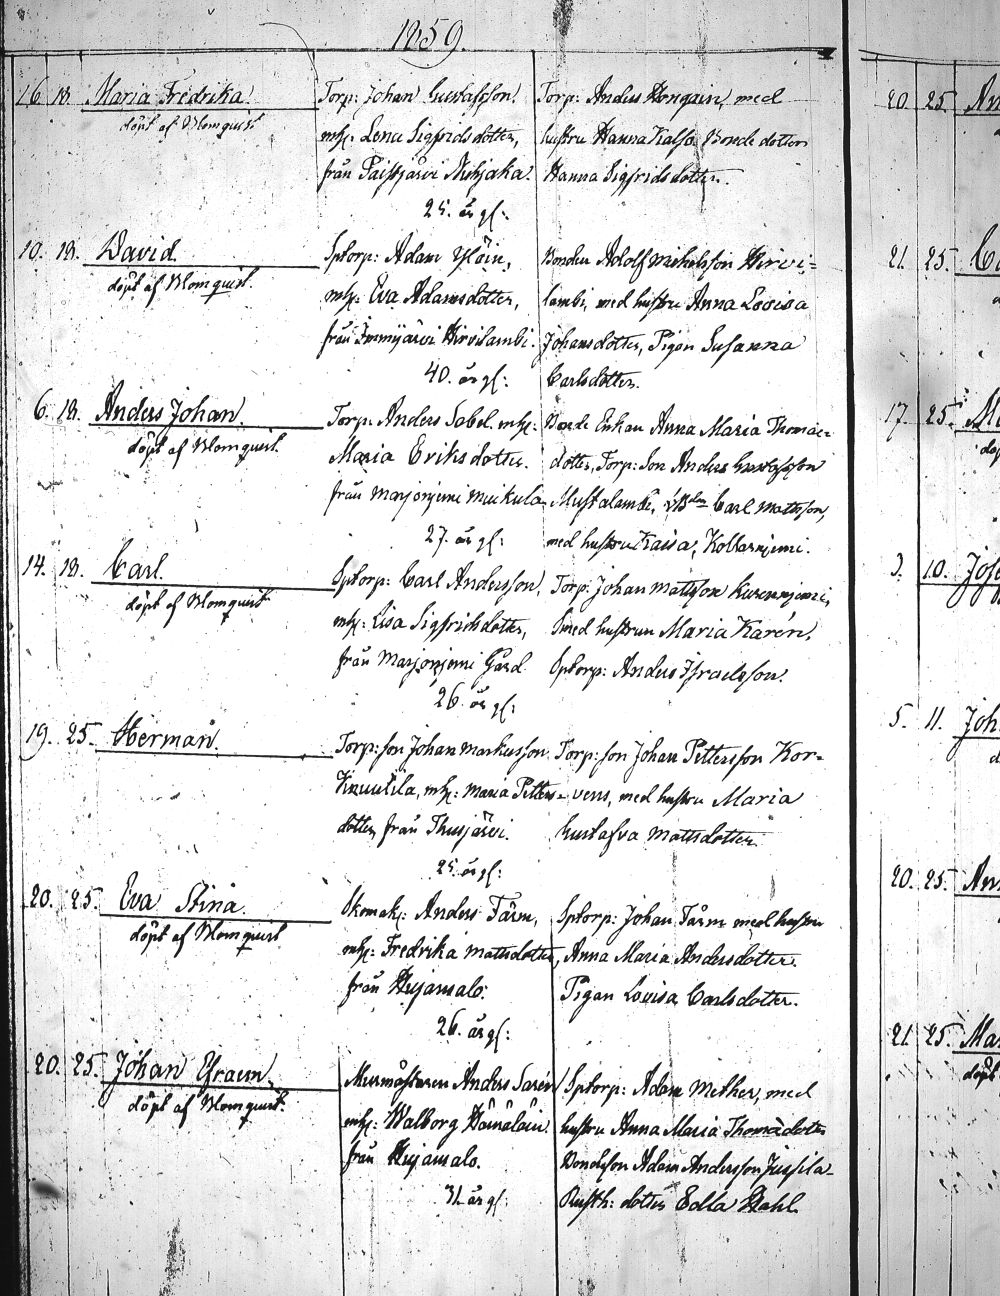 1859.
16. 18. Maria Fredrika.
döpt af Blomquist
Torp: Johan Gustafsson.
mh: Lena Sigfridsdotter,
från Paisjärvi
25. år gl:
Torp: Anders Hongain, med
hustru Hanna Bondedotter
Hanna Sigfridsdotter.
10. 18. David.
döpt af Blomquist.
Sptorp: Adam
mh: Eva Adamsdotter,
från Immijärvi Hirvilambi.
40. år gl:
Bonden Adolf Michelsson Hirvi=
lambi, med hustru Anna Lovisa
Johansdotter, Pigan Susanna
Carlsdotter.
6. 18. Anders Johan.
döpt af Blomquist.
Torp: Anders Sabel. mh:
Maria Eriksdotter.
från Marjoniemi
27. år gl:
Bonde Enkan Anna Maria Thomæ=
dotter, Torp: Son Anders Gustafsson
Carl Mattsson,
med hustru Kaisa,
14. 18. Carl.
döpt af Blomquist
Sptorp: Carl Andersson,
mh: Lisa Sigfridsdotter,
från Marjoniemi Gård
26. år gl:
Torp: Johan Mattsson
Smed hustrun Maria Karén.
Sptorp: Anders Israelsson.
19. 25. Herman.
Torp: son Johan Markusson
mh: Maria Petters=
dotter, från
25. år gl:
Torp: son Johan Pettersson Kor=
vens, med hustru Maria
Gustafva Mattsdotter
20. 25. Eva Stina.
döpt af Blomquist
Anders Färm,
mh: Fredrika Mattsdotter,
från Hujansalo.
26. år gl:
Sptorp: Johan Färm med hustru
Anna Maria Andersdotter.
Pigan Lovisa Carlsdotter.
20. 25. Johan Efraim.
döpt af Blomquist.
Murmästaren Anders Sarén
mh: Walborg Hämäläin.
från Hujansalo.
31. år gl:
Sptorp: Adam Mether, med
hustru Anna Maria Thomædotter
Bondeson Adam Andersson Jussila
Rusth: dotter Edla Stahl.
20. 25. An
21. 25. Ca
17. 25. Ma
döp
3. 10. Jose
5. 11. Joh
d
20. 25. Ann
21. 25. Mar
döpt